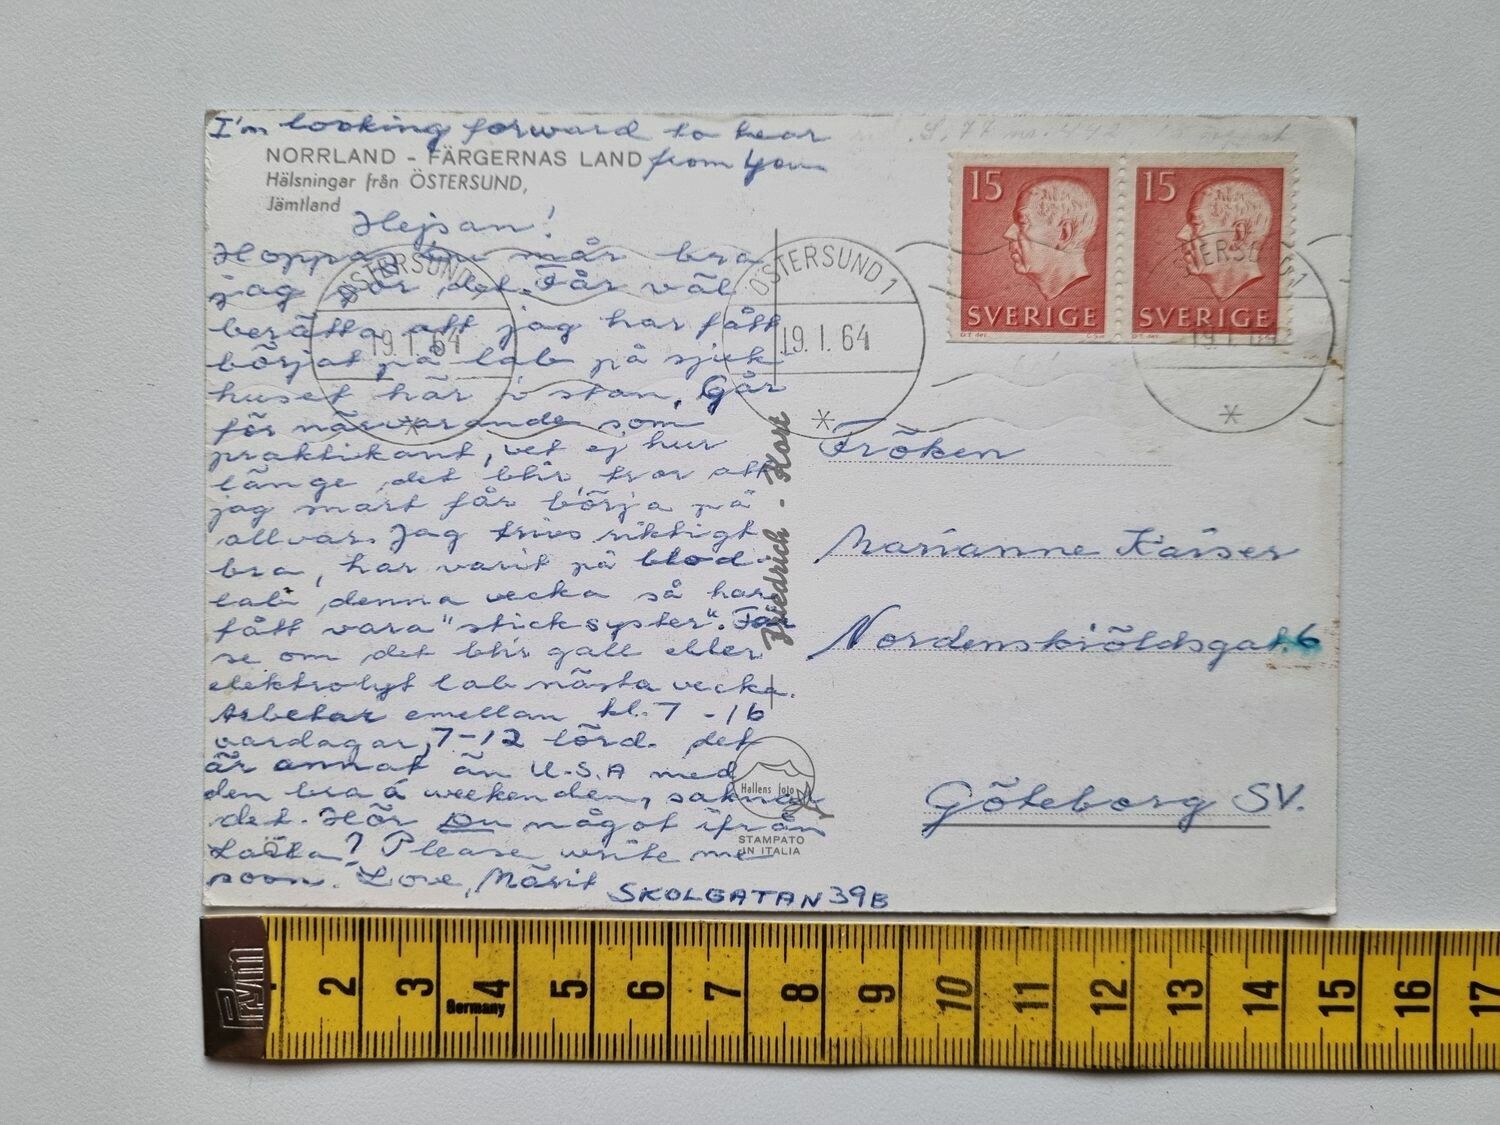 I'm looking forward to hear
from you
NORRLAND - FÄRGERNAS LAND
Hälsningar från ÖSTERSUND,
Jämtland
Hejsan!
Hoppas Du mår bra
jag gör det. Får väl
berätta att jag har fått
börjat på lab på sjuk-
huset här i stan. Går
för närvarande som
praktikant, vet ej hur
länge det blir, tror att
jag snart får börja på
allvar. Jag trivs riktigt
bra, har varit på blod-
lab denna vecka så har
fått vara "sticksyster". Får
se om det blir gall eller
elektrolyt lab nästa vecka.
Arbetar emellan kl. 7 - 16
vardagar, 7-12 lörd. det
är annat än U.S.A med
den bra weekenden, saknar
det. Hör Du något ifrån
? Please write me
soon. Love, Märit
SKOLGATAN 39B
ÖSTERSUND 1
19. 1. 64
ÖSTERSUND 1
19. 1. 64
ÖSTERSUND 1
19. 1.
15
SVERIGE
15
SVERIGE
Friedrich - Kort
Hallens foto
STAMPATO
IN ITALIA
Fröken
Marianne Kaiser
Nordenskiöldsgat. 6
Göteborg SV.
Prym
2 3 4 5 6 7 8 9 10 11 12 13 14 15 16 17
Germany